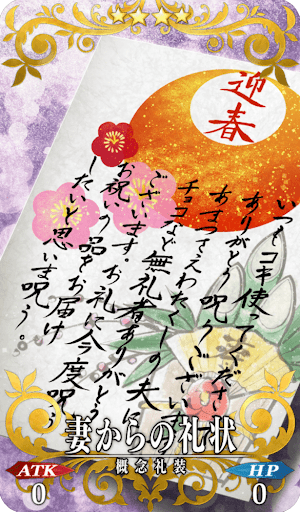 迎春
いつもコキ使ってくださり
ありがとう呪うございます
あまつさえわたくしの夫に
チョコなど無礼者ありがとう
ございます。お礼に今度呪う
お祝いの品をお届け
したいと思いま呪う。
妻からの礼状
概念礼装
ATK
0
HP
0